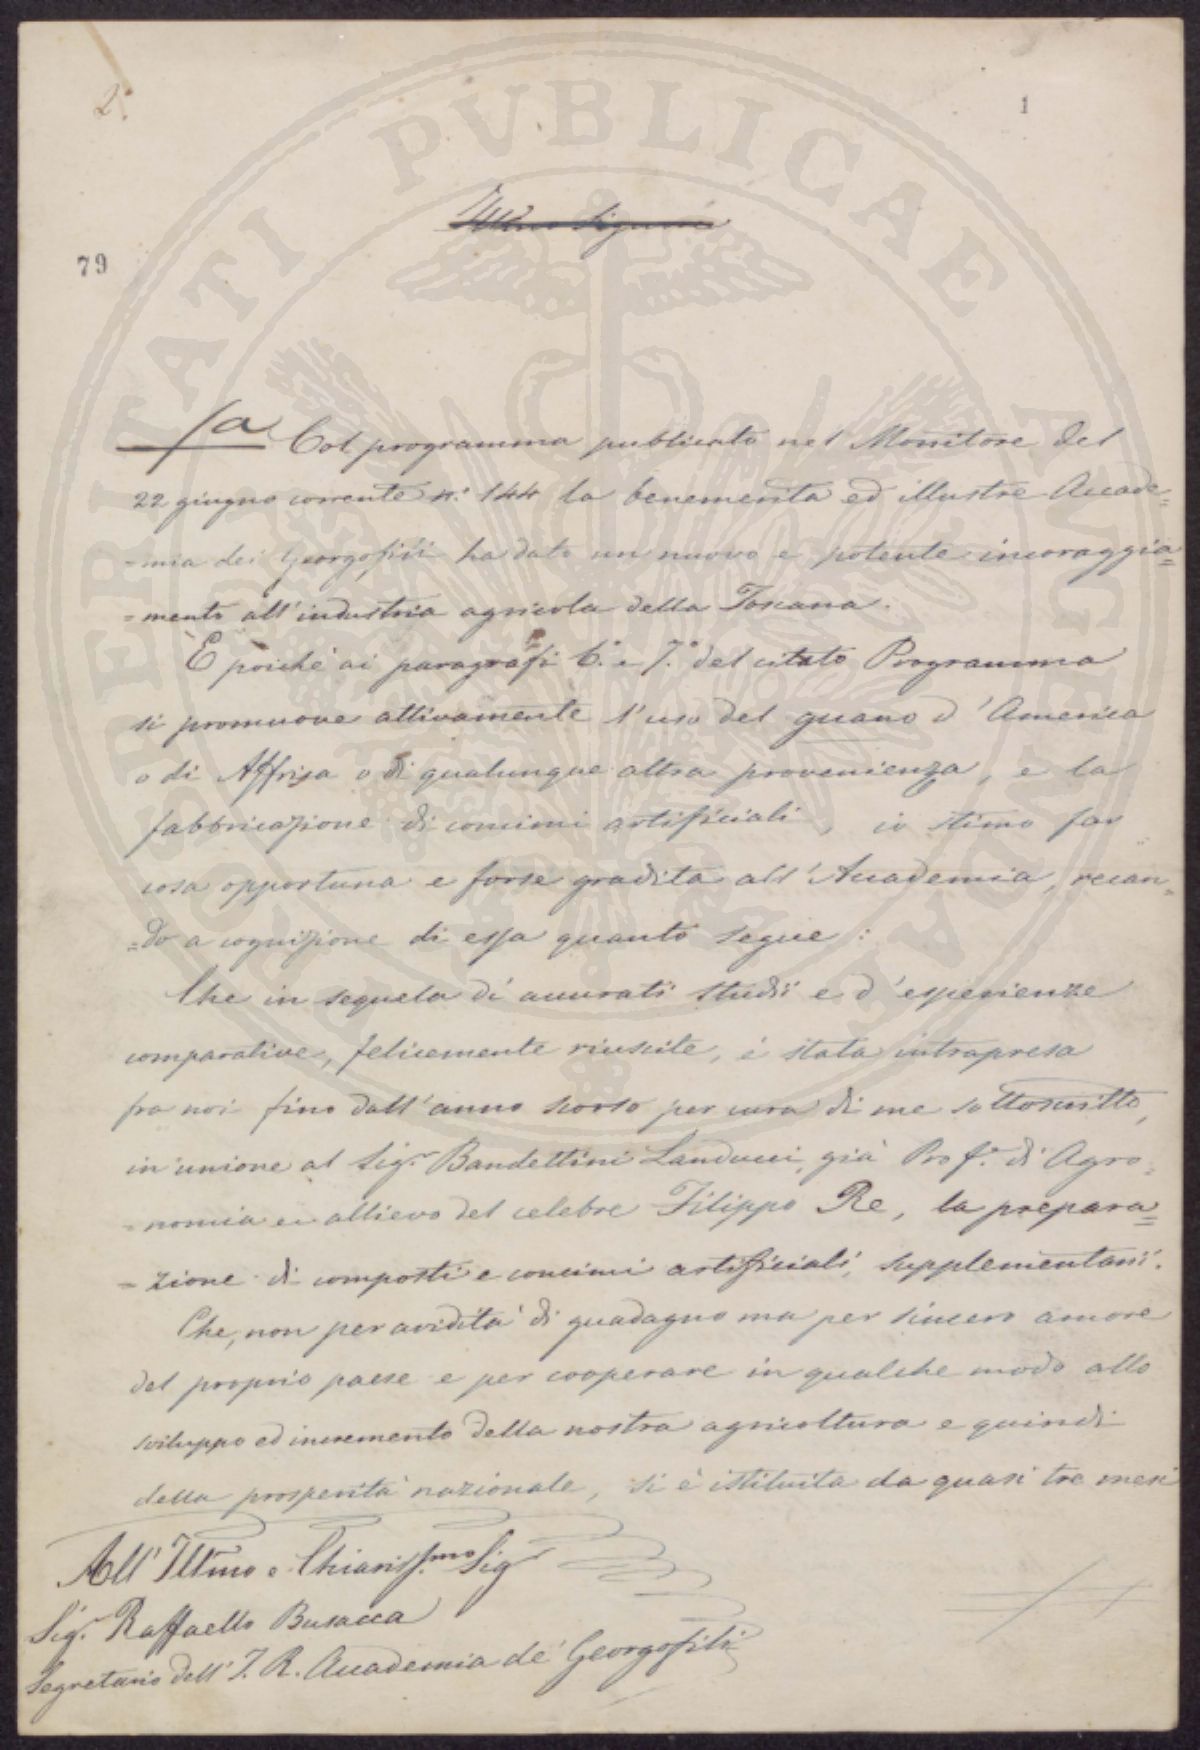 2.°
1
Illmo Signore
79
1a
Col programma publicato nel Monitore del
22 giugno corrente n.° 144 la benemerita ed illustre Accade=
=mia dei Georgofili ha dato un nuovo e potente incoraggia=
=mento all'industria agricola della Toscana.
E poichè ai paragrafi 6.° e 7.° del citato Programma
si promuove attivamente l'uso del guano d'America
o di Affrica o di qualunque altra provenienza, e la
fabbricazione di concimi artificiali, io stimo far
cosa opportuna e forse gradita all'Accademia, recan=
=do a cognizione di essa quanto segue:
Che in sequela di accurati studii e d'esperienze
comparative, felicemente riuscite, è stata intrapresa
fra noi fino dall'anno scorso per cura di me sottoscritto,
in unione al Sig.r Bandettini Landucci, già Prof.e di Agro=
=nomia e allievo del celebre Filippo Re, la prepara=
=zione di composti e concimi artificiali, supplementarii.
Che, non per avidità di guadagno ma per sincero amore
del proprio paese e per cooperare in qualche modo allo
sviluppo ed incremento della nostra agricoltura e quindi
della prosperità nazionale, si è istituita da quasi tre mesi
All'Illmo e Chiariss.mo Sig.r
Sig.r Raffaello Busacca
Segretario dell'I. R. Accademia de' Georgofili
PROSPERITATI PVBLICAE AVGENDAE